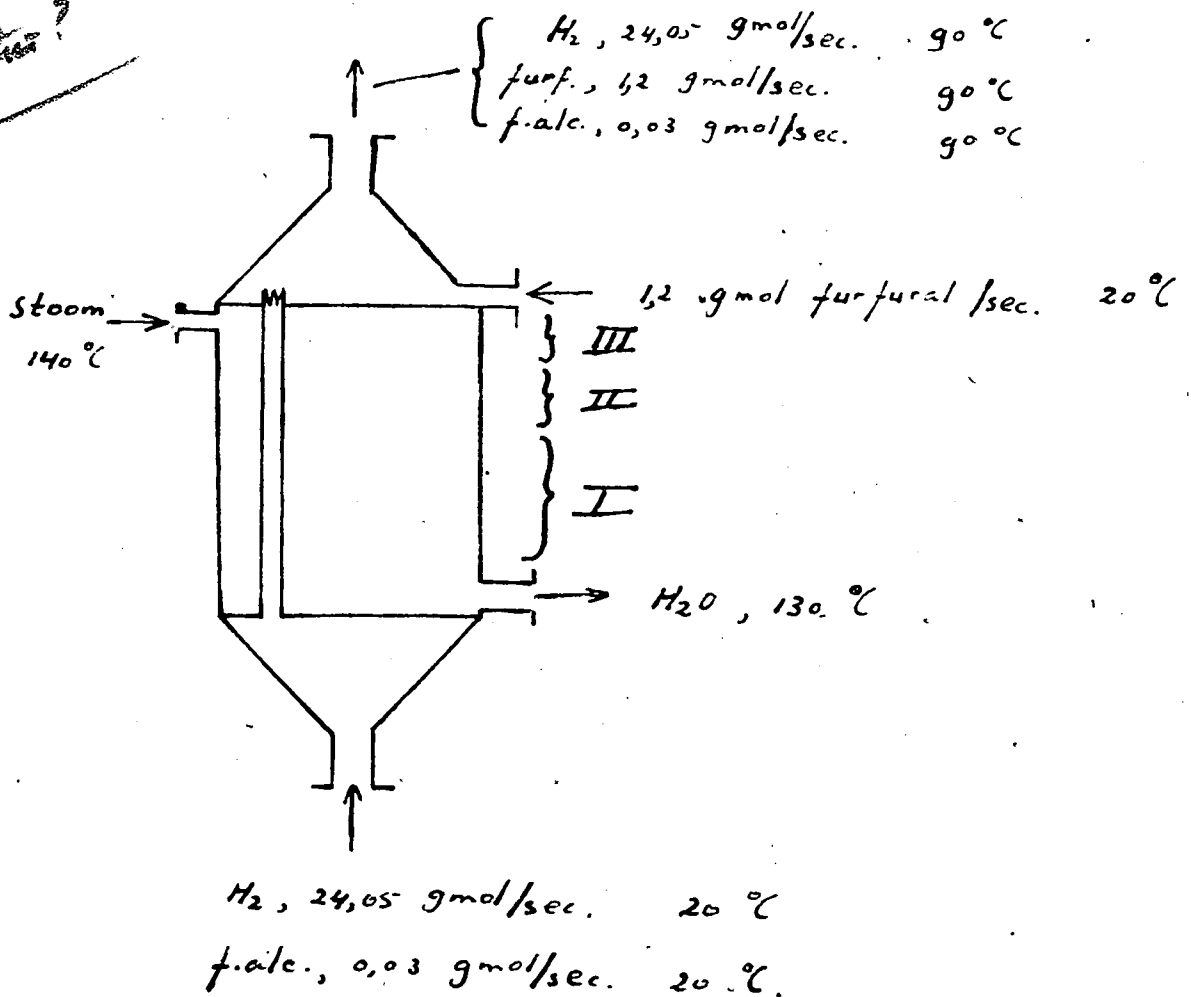 ?
H₂, 24,05 gmol/sec. 90 °C
furf., 1,2 gmol/sec. 90 °C
f.alc., 0,03 gmol/sec. 90 °C
1,2 gmol furfural /sec. 20 °C
stoom
140 °C
III
II
I
H₂O, 130 °C
H₂, 24,05 gmol/sec. 20 °C
f.alc., 0,03 gmol/sec. 20 °C.